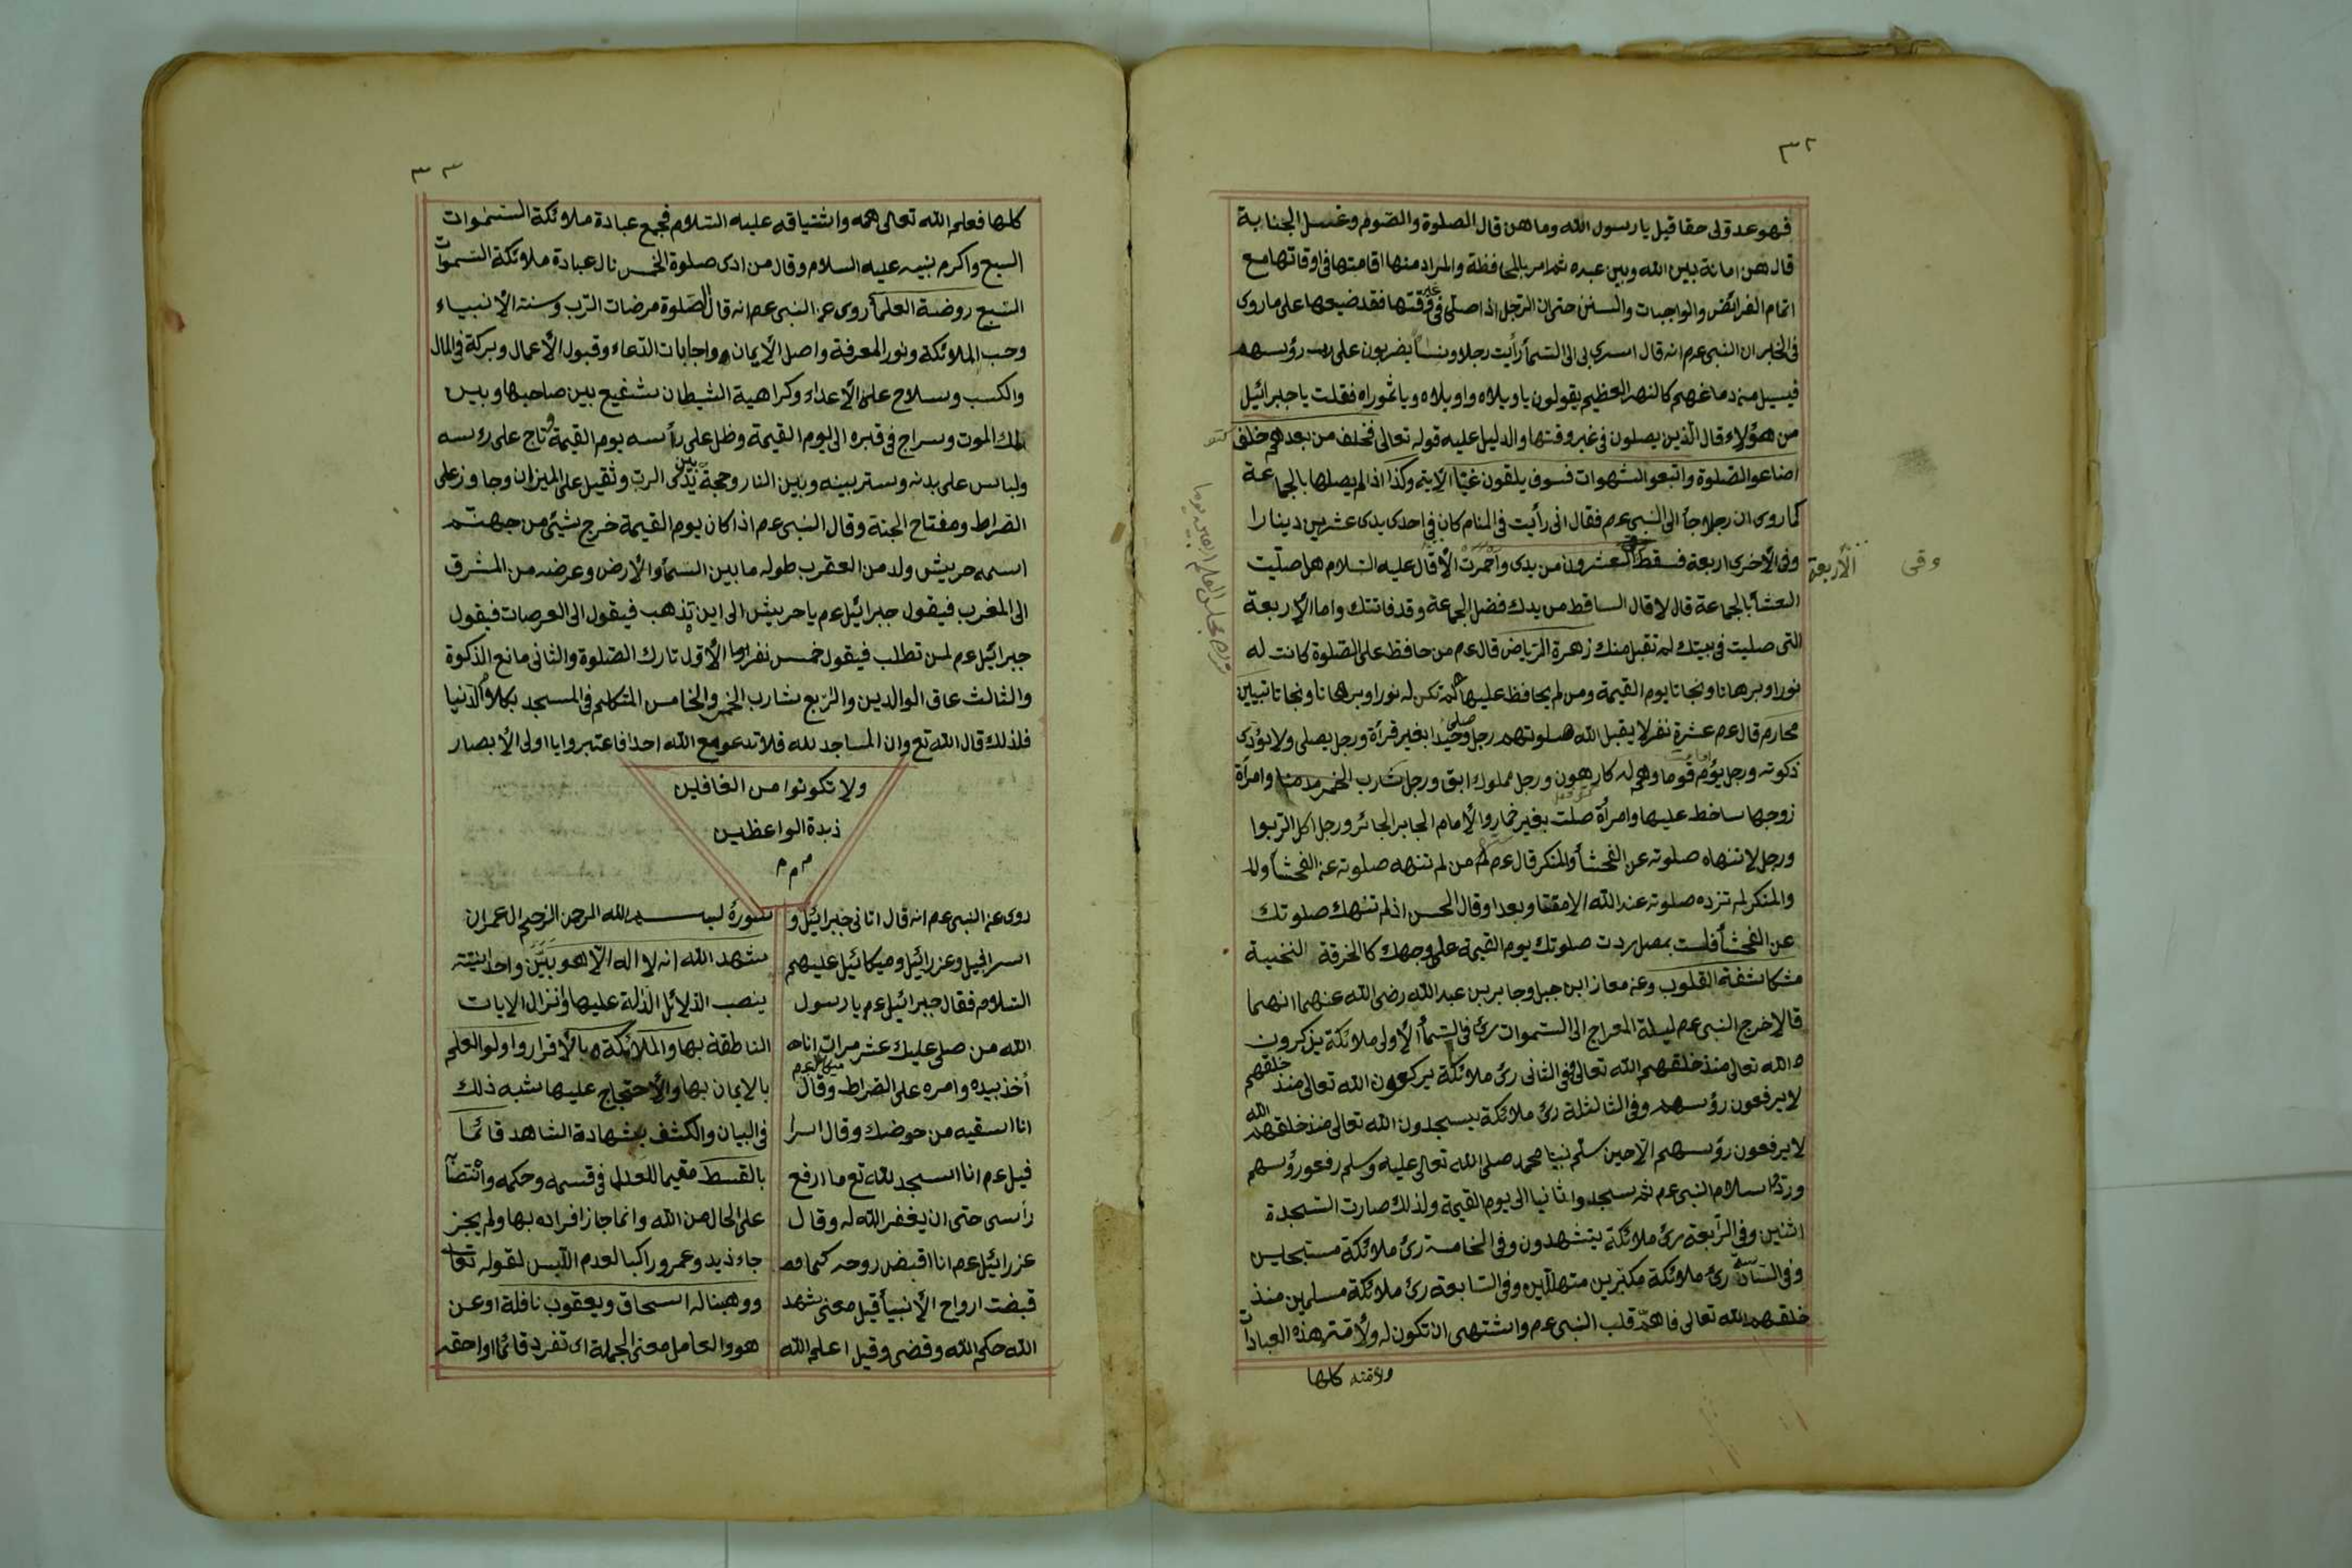 ٣٢
فهو عدولی حقا قيل يا رسول الله وما هن قال الصلوة والصوم وغسل الجنابة
قال هن امانة بين الله وبين عبده ثم امر بالمحافظة والمراد منها اقامتها فى اوقاتها مع
اتمام الفرائض والواجبات والسنن حتى ان الرجل اذا صلى فى غير وقتها فقد ضيعها على ما روى
فى الخبر ان النبى عم انه قال اسرى بى الى السمأ رأيت رجلا ونسأ يضربون على رؤسهم
فيسيل منه دماغهم كالنهر العظيم يقولون يا ويلاه واويلاه ويا ثبوراه فقلت يا جبرائيل
من هؤلاء قال الذين يصلون فى غير وقتها والدليل عليه قوله تعالى فخلف من بعدهم خلف
اضاعوا الصلوة واتبعوا الشهوات فسوف يلقون غيّا الاية وكذا اذا لم يصلها بالجماعة
كما روى ان رجلا جأ الى النبى عم فقال انى رأيت فى المنام كان فى احدى يدى عشرين دينارا
وفى الأخرى اربعة فسقط العشرون من يدى واحمرت قال عليه السلام هل صليت
الأربعة
وقى
العشأ بالجماعة قال لا قال الساقط من يدك فضل الجماعة وقد فاتتك واما الأربعة
التى صليت فى بيتك لم تقبل منك زهرة الرياض قال عم من حافظ على الصلوة كانت له
نورا وبرهانا ونجاتا يوم القيمة ومن لم يحافظ عليها لم تكن له نورا وبرهانا ونجاتا تبيين
محارم قال عم عشرة نفر لا يقبل الله صلوتهم رجل صلى وحيدا بغير قرأة ورجل يصلى ولا يؤدى
ذكوته ورجل يؤم قوما وهم له كارهون ورجل مملوك ابق ورجل شارب الخمر مدمنا وامرأة
زوجها ساخط عليها وامرأة صلت بغير خمار والأمام الجابر الجائر ورجل اكل الربوا
ورجل لا تنهاه صلوته عن الفحشأ والمنكر قال عم من لم تنهه صلوته عن الفحشأ
والمنكر لم تزده صلوته عند الله الا مقتا وبعدا وقال الحسن اذ لم تنهك صلوتك
عن الفحشأ فلست بمصل ردت صلوتك يوم القيمة على وجهك كالخرقة
مكاشفة القلوب وعن معاذ ابن جبل وجابر بن عبد الله رضى الله عنهما انهما
قالا خرج النبى عم ليلة المعراج الى السموات رئ فى السمأ الأولى ملائكة يذكرون
الله تعالى منذ خلقهم الله تعالى وفى الثانى رئ ملائكة يركعون الله تعالى منذ خلقهم
لا يرفعون رؤسهم وفى الثالثة رئ ملائكة يسجدون الله تعالى منذ خلقهم الله
لا يرفعون رؤسهم الا حين سلم نبينا محمد صلى الله تعالى عليه وسلم رفعو رؤسهم
وردوا سلام النبى عم ثم سجدوا ثانيا الى يوم القيمة ولذلك صارت السجدة
اثنين وفى الرابعة رئ ملائكة يتشهدون وفى الخامسة رئ ملائكة مسبحين
وفى السادسة رئ ملائكة مكبرين متهللين وفى السابعة رئ ملائكة مسلمين منذ
خلقهم الله تعالى فاهمّ قلب النبى عم واشتهى ان تكون له ولأمته هذه العبادات
ولامته كلها
٣٣
كلها فعلم الله تعالى همه واشتياقه عليه السلام فجمع عبادة ملائكة السموات
السبع واكرم نبيه عليه السلام وقال من ادى صلوة الخمس نال عبادة ملائكة السموات
السبع روضة العلمأ روى عن النبى عم انه قال الصلوة مرضات الرب وسنة الأنبياء
وحب الملائكة ونور المعرفة واصل الأيمان واجابات الدعاء وقبول الأعمال وبركة فى المال
والكسب وسلاح على الأعداء وكراهية الشيطان شفيع بين صاحبها وبين
ملك الموت وسراج فى قبره الى يوم القيمة وظل على رأسه يوم القيمة وتاج على رئسه
ولباس على بدنه وستر بينه وبين النار وحجة بين يدى الرب وثقيل على الميزان وجاوز على
الصراط ومفتاح الجنة وقال النبى عم اذا كان يوم القيمة خرج شيئ من جهنم
اسمه حريش ولد من العقرب طوله ما بين السمأ والأرض وعرضه من المشرق
الى المغرب فيقول جبرائيل عم يا حريش الى اين تذهب فيقول الى العرصات فيقول
جبرائيل عم لمن تطلب فيقول خمس نفر اما الأول تارك الصلوة والثانى مانع الذكوة
والثالث عاق الوالدين والرابع شارب الخمر والخامس المتكلم فى المسجد بكلام الدنيا
فلذلك قال الله تع وان المساجد لله فلا تدعو مع الله احدا فاعتبروا يا اولى الأبصار
ولا تكونوا من الغافلين
زبدة الواعظين
م م م
روى عن النبى عم انه قال اتانى جبرائيل و
اسرافيل وعزرائيل وميكائيل عليهم
السلام فقال جبرائيل عم يا رسول
الله من صلى عليك عشر مرات انا
أخذ بيده وامره على الصراط وقال ميكائيل عم
انا اسقيه من حوضك وقال اسرا
فيل عم انا اسجد لله تع ما ارفع
رأسى حتى ان يغفر الله له وقال
عزرائيل عم انا اقبض روحه كما
قبضت ارواح الأنبيأ قيل معنى شهد
الله حكم الله وقضى وقيل اعلم الله
سورة بسم الله الرحمن الرحيم ال عمران
شهد الله انه لا اله الا هو بَيَّنَ واحدانيته
ينصب الدلائل الدلة عليها وانزال الايات
الناطقة بها والملائكة بالأقرار واولو العلم
بالايمان بها والأحتجاج عليها شبه ذلك
فى البيان والكشف بشهادة الشاهد قائما
بالقسط مقيما للعدل فى قسمه وحكمه وانتصا
على الحال من الله وانما جاز افراده بها ولم يجز
جاء زيد وعمرو راكبا لعدم اللبس لقوله تعا
ووهبنا له اسحاق ويعقوب نافلة او عن
هو والعامل معنى الجملة اى تفرد قائما او احقه